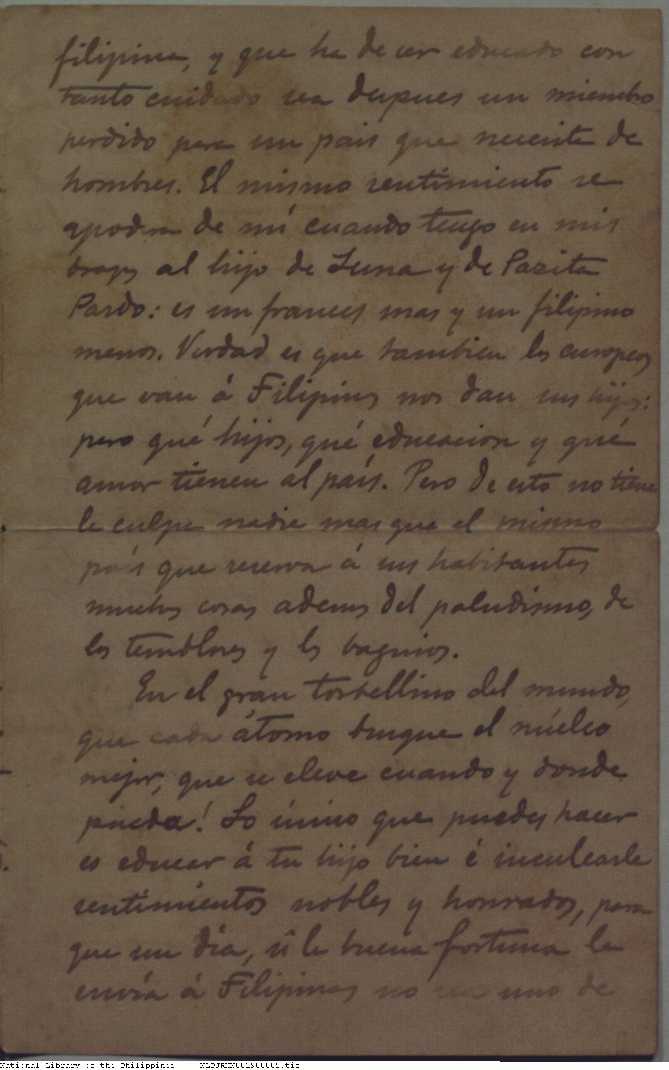 filipina, y que ha de ser educado con
tanto cuidado sea depues un miembro
perdido para un pais que necesita de
hombres. El mismo sentimiento se
apodera de mí cuando tengo en mis
brazos al hijo de Luna y de Pazita
Pardo: es un frances mas y un filipino
menos. Verdad es que tambien los europeos
que van á Filipinas nos dan sus hijos:
pero qué hijos, qué educacion y qué
amor tienen al país. Pero de esto no tiene
la culpa nadie mas que el mismo
país que reserva á sus habitantes
muchas cosas ademas del paludismo, de
los temblores y los baguios.
En el gran torbellino del mundo,
que cada átomo busque el núcleo
mejor, que se eleve cuando y donde
pueda! Lo único que puedes hacer
es educar á tu hijo bien é inculcarle
sentimientos nobles y honrados, para
que un día, si la buena fortuna le
envía á Filipinas no sea uno de
National Library of the Philippines